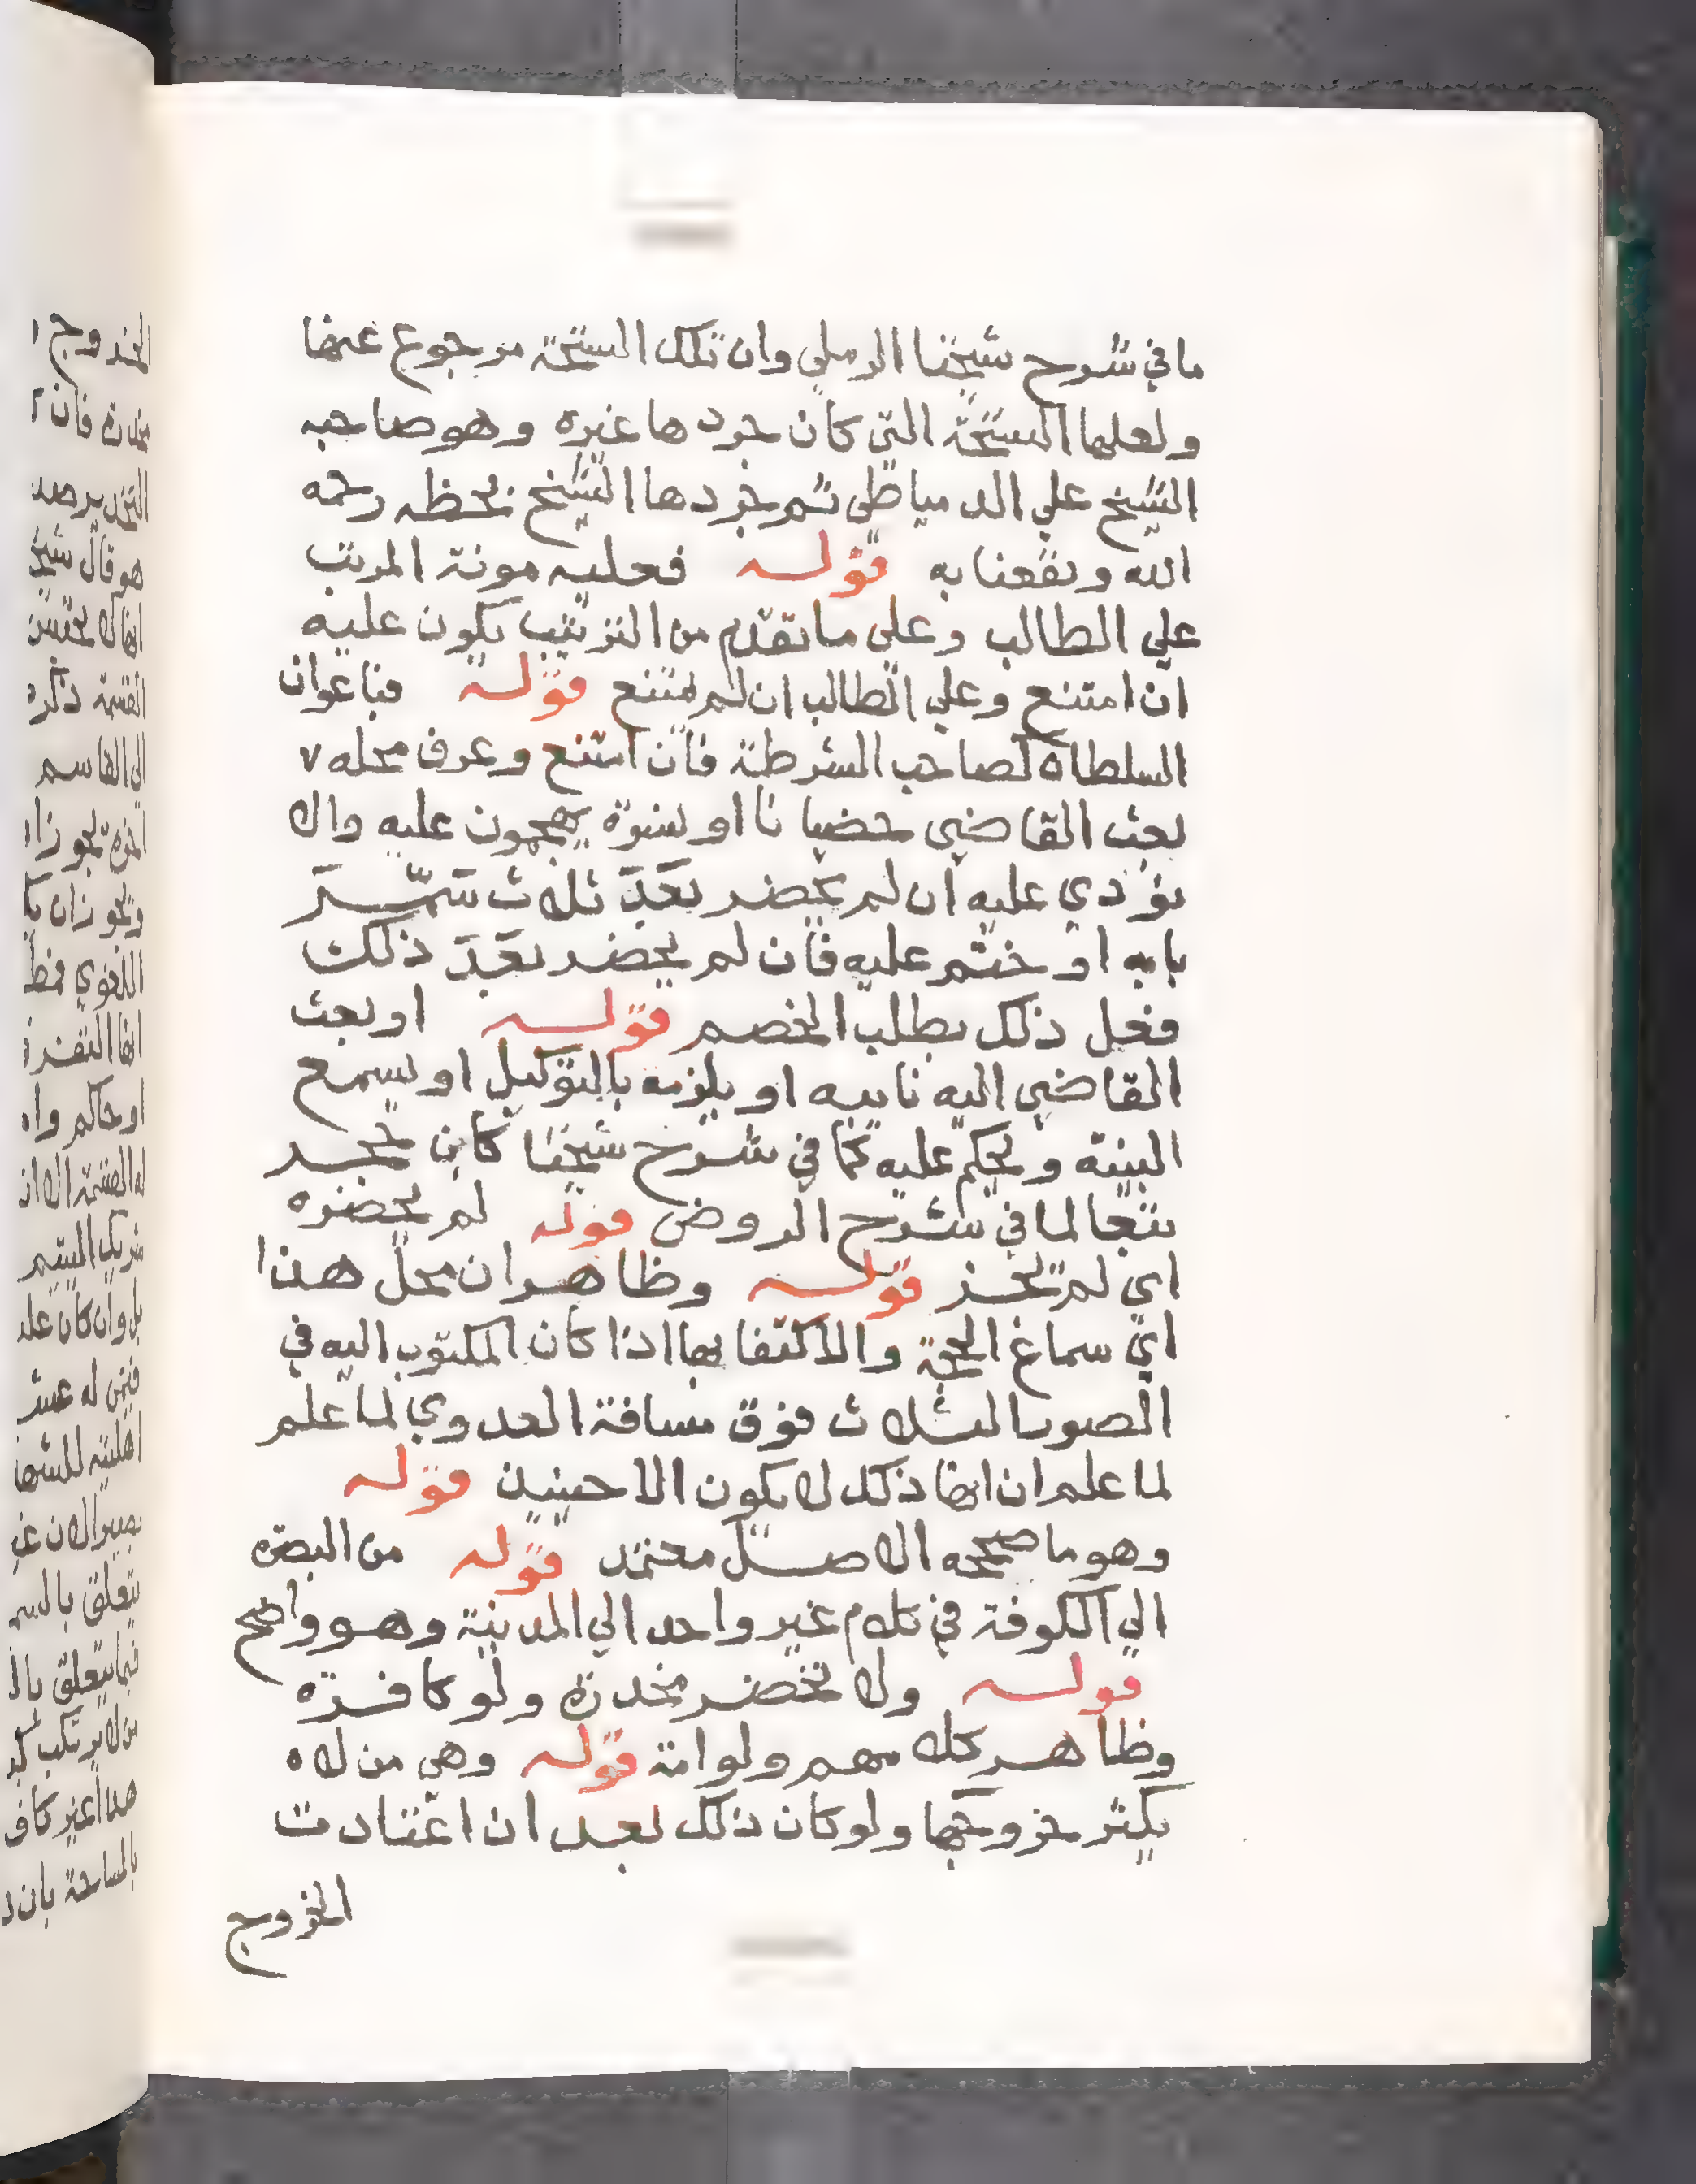 ما في شرح شيخنا الرملي وان تلك النسخة مرجوع عنها
ولعلها النسخة التي كان جردها غيره وهو صاحبه
الشيخ علي الدمياطي ثم جردها الشيخ بخطه رحمه
الله ونفعنا به قوله فعليه مونة المرتب
علي الطالب وعلي ما تقدم من الترتيب يكون عليه
ان امتنع وعلي الطالب ان لم يمتنع قوله فباعوان
السلطان لصاحب الشرطة فان امتنع وعرف محله
بعث القاضي خصيانا او نسوة يهجمون عليه والا
نودي عليه ان لم يحضر بعد ثلاث سمر
بابه او ختم عليه فان لم يحضر بعد ذلك
فعل ذلك بطلب الخصم قوله او بعث
القاضي اليه نايبه او يلزمه بالتوكيل او يسمع
البينة ويحكم عليه كما في شرح شيخنا كابن حجر
تبعا لما في شرح الروض قوله لم يحضره
اي لم تجز قوله وظاهر ان محل هذا
اي سماع الحجة والاكتفا بها اذا كان المكتوب اليه في
الصور الثلاث فوق مسافة العدوي لما علم
لما علم ان انها ذلك لا يكون الا حينيذ قوله
وهو ما صححه الاصل معتمد قوله من البصرة
الي الكوفة في كلام غير واحد الي المدينة وهو واضح
قوله ولا تحضر مخدرة ولو كافرة
وظاهر كلامهم ولو امة قوله وهي من لا
يكثر خروجها ولو كان ذلك بعد ان اعتادت
الخروج